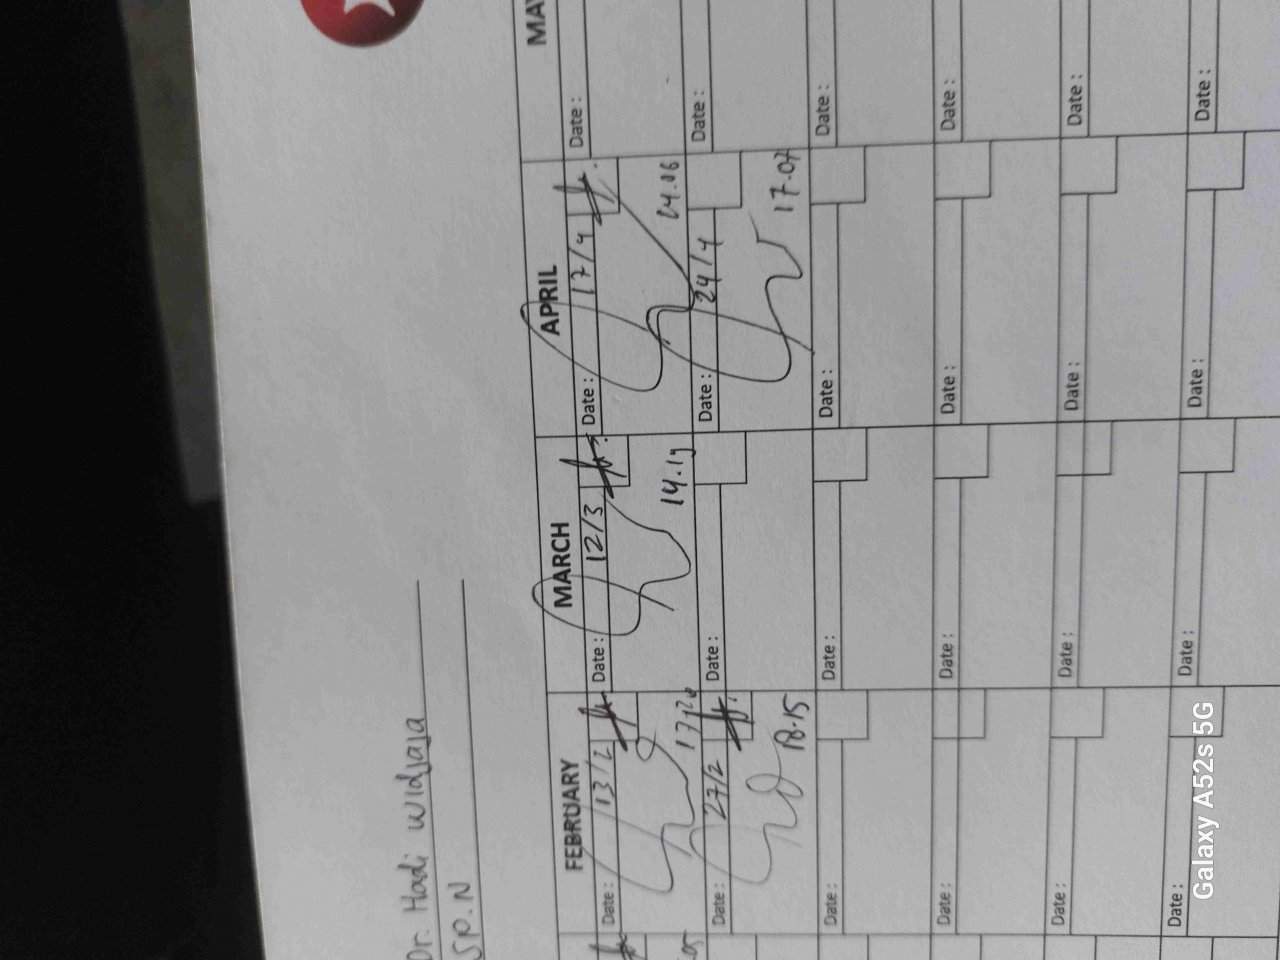 Dr. Hadi Widjaja
SP.N
FEBRUARY MARCH APRIL
Date : 13/2 Date : 12/3 Date : 17/4 Date :
14.19 14.16
Date : 27/2 Date : Date : 24/4 Date :
18.15 17.07
Date : Date : Date : Date :
Date : Date : Date : Date :
Date : Date : Date : Date :
Date : Date : Date : Date :
Galaxy A52s 5G